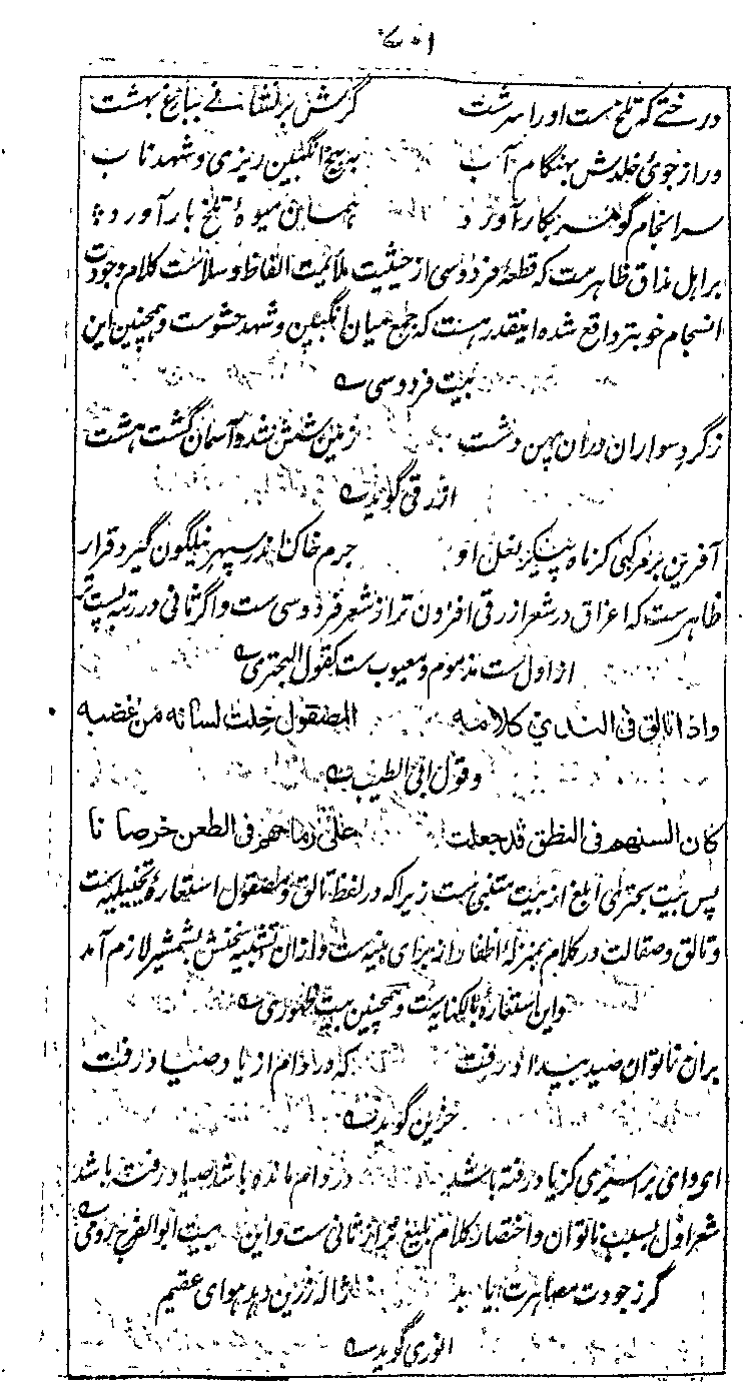 درختے کہ تلخ ست او را سرشت گرش برنشانے بباغ بہشت
ور از جوئ خلدش بہنگام آب بہ بیخ انگبین ریزی و شہد ناب
سرانجام گوہر بکار آورد ہمان میوۂ تلخ بار آورد
بر اہل مذاق ظاہر ست کہ قطعہ فردوسی از حیثیت ملائمت الفاظ و سلاست کلام وجودت
انسجام خوبتر واقع شدہ اینقدر ہست کہ جمع میان انگبین و شہد حشوست و ہمچنین این
بیت فردوسی
ز گرد سواران دران پہن دشت زمین شش شدہ و آسمان گشت ہشت
ازرقی گوید
آفرین بر مرکبی کز ماہ پیکر نعل او جرم خاک اندر سپہر نیلگون گیرد قرار
ظاہر ست کہ اغراق در شعر ازرقی افزون تر از شعر فردوسی ست و اگر ثانی در رتبہ پست تر
از اول ست مذموم و معیوب ست کقول البحتری
واذا تالق فی الندی کلامہ المصقول خلت لسانہ من عضبہ
وقول ابی الطیب
کان السنهم فی النطق قد جعلت علی رماحهم فی الطعن خرصانا
پس بیت بحتری ابلغ از بیت متنبی ست زیرا کہ در لفظ تالق و مصقول استعارۂ تخییلیہ ست
و تالق و صقالت در کلام بمنزلہ اظفار از برای منیہ ست و ازان تشبیہ سخنش بشمشیر لازم آمد
و این استعارۂ بالکنایہ ست و ہمچنین بیت ظہوری
بران ناتوان صید بیداد رفت کہ در دام از یاد صیاد رفت
حزین گوید
ای وای بر اسیری کز یاد رفتہ باشد در دام ماندہ باشد صیاد رفتہ باشد
شعر اول بسبب ناتوان و اختصار کلام بلیغ تر از ثانی ست و این بیت ابو الفرج رومی
گر ز جودت مصاہرت یابد ژالہ زرین دہد ہوای عقیم
انوری گوید